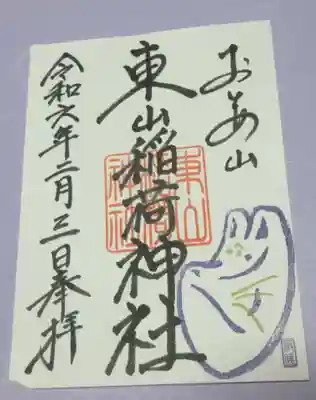 お姿山
東山稲荷神社
東山
稲荷
神社
令和六年二月三日奉拝